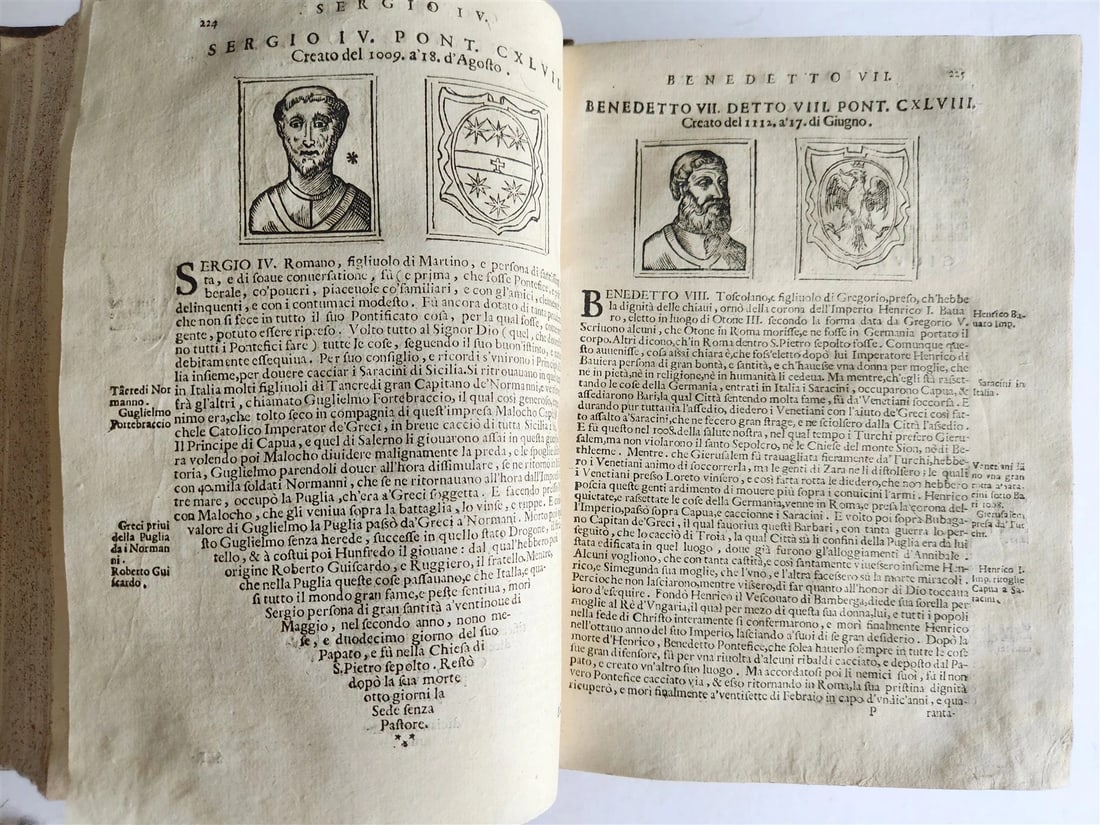 224
SERGIO IV.
SERGIO IV. PONT. CXLVII.
Creato del 1009. a'18. d'Agosto.
*
SERGIO IV. Romano, figliuolo di Martino, e persona di
ta, e di soaue conuersatione, fù (e prima, che fosse Pontefice
berale, co'poueri, piaceuole co'familiari, e con gl'amici,
delinquenti, e con i contumaci modesto. Fù ancora dotato di tanta
che non si fece in tutto il suo Pontificato cosa, per la qual fosse,
gente, potuto essere ripreso. Volto tutto al Signor Dio (quel, che
no tutti i Pontefici fare) tutte le cose, seguendo il suo buon istinto, e
debitamente essequiua. Per suo consiglio, e ricordi s'vnirono i Principi
lia insieme, per douere cacciar i Saracini di Sicilia. Si ritrouauano in
in Italia molti figliuoli di Tancredi gran Capitano de'Normanni, e
frà gl'altri, chiamato Guglielmo Fortebraccio, il qual così generoso,
nimo era, che tolto seco in compagnia di quest'impresa Malocho
chele Catolico Imperator de'Greci, in breue cacciò di tutta Sicilia
Il Principe di Capua, e quel di Salerno li giouarono assai in questa
ra volendo poi Malocho diuidere malignamente la preda, e le spoglie
toria, Guglielmo parendoli douer all'hora dissimulare, se ne ritornò
con 40.mila soldati Normanni, che se ne ritornauano all'hora dall'
tre mare, occupò la Puglia, ch'era a'Greci soggetta. E facendo
con Malocho, che gli veniua sopra la battaglia, lo vinse, e ruppe. E
valore di Guglielmo la Puglia passò da'Greci a'Normani. Morto
sto Guglielmo senza herede, successe in quello stato Drogone,
tello, & à costui poi Hunfredo il giouane: dal qual'hebbero poi
origine Roberto Guiscardo, e Ruggiero, il fratello. Mentre,
che nella Puglia queste cose passauano, e che Italia, e qua-
si tutto il mondo gran fame, e peste sentiua, morì
Sergio persona di gran santità a'ventinoue di
Maggio, nel secondo anno, nono me-
se, e duodecimo giorno del suo
Papato, e fù nella Chiesa di
S.Pietro sepolto. Restò
dopò la sua morte
otto giorni la
Sede senza
Pastore.
Tãcredi Nor
manno.
Guglielmo
Fortebraccio
Greci priui
della Puglia
da i Norman
ni.
Roberto Gui
scardo.
BENEDETTO VII.
225
BENEDETTO VII. DETTO VIII. PONT. CXLVIII.
Creato del 1112. a'17. di Giugno.
BENEDETTO VIII. Toscolano, e figliuolo di Gregorio, preso, ch'hebbe
la dignità delle chiaui, ornò della corona dell'Imperio Henrico I. Baua
ro, eletto in luogo di Otone III. secondo la forma data da Gregorio V.
Scriuono alcuni, che Otone in Roma morisse, e ne fosse in Germania portato il
corpo. Altri dicono, ch'in Roma dentro S.Pietro sepolto fosse. Comunque que-
sto auuenisse, cosa assai chiara è, che foss'eletto dopò lui Imperatore Henrico di
Bauiera persona di gran bontà, e santità, e ch'hauesse vna donna per moglie, che
ne in pietà, nè in religione, nè in humanità li cedeua. Ma mentre, ch'egli stà rasset-
tando le cose della Germania, entrati in Italia i Saracini, occuparono Capua, &
assediarono Bari, la qual Città sentendo molta fame, fù da'Venetiani soccorsa. E
durando pur tuttauia l'assedio, diedero i Venetiani con l'aiuto de'Greci così fat-
to assalto a'Saracini, che ne fecero gran strage, e ne sciolsero dalla Città l'assedio.
E fù questo nel 1008. della salute nostra, nel qual tempo i Turchi presero Gieru-
salem, ma non violarono il santo Sepolcro, nè le Chiese del monte Sion, nè di Be-
thleeme. Mentre, che Gierusalem fù trauagliata fieramente da'Turchi, hebbe-
ro i Venetiani animo di soccorrerla, ma le genti di Zara ne li distolsero: le quali
i Venetiani presso Loreto vinsero, e così fatta rotta le diedero, che non hebbero
poscia queste genti ardimento di mouere più sopra i conuicini l'armi. Henrico
quietate, e rassettate le cose della Germania, venne in Roma, e presa la corona del-
l'Imperio, passò sopra Capua, e caccionne i Saracini. E volto poi sopra Bubaga-
no Capitan de'Greci, il qual fauoriua questi Barbari, con tanta guerra lo per-
seguitò, che lo cacciò di Troia, la qual Città sù li confini della Puglia era da lui
stata edificata in quel luogo, doue già furono gl'alloggiamenti d'Annibale.
Alcuni vogliono, che con tanta castità, e così santamente viuessero insieme Hen-
rico, e Simegunda sua moglie, che l'vno, e l'altra facessero sù la morte miracoli.
Percioche non lasciarono, mentre vissero, di far quanto all'honor di Dio toccaua
loro d'esequire. Fondò Henrico il Vescouato di Bamberga, diede sua sorella per
moglie al Rè d'Vngaria, il qual per mezo di questa sua donna, lui, e tutti i popoli
nella fede di Christo interamente si confermarono, e morì finalmente Henrico
nell'ottauo anno del suo Imperio, lasciando a'suoi di se gran desiderio. Dopò la
morte d'Henrico, Benedetto Pontefice, che solea hauerlo sempre in tutte le cose
sue gran difensore, fù per vna riuolta d'alcuni ribaldi cacciato, e deposto dal Pa-
pato, e creato vn'altro suo luogo. Ma accordatosi poi li nemici suoi, fù il non
vero Pontefice cacciato via, & esso ritornando in Roma, la sua pristina dignità
ricuperò, e morì finalmente a'ventisette di Febraio in capo d'vndic'anni, e qua-
P
ranta-
Henrico Ba-
uaro Imp.
Saracini in
Italia.
Venetiani fã
no vna gran
rotta a'Sara-
cini sotto Ba
ri 1008.
Gierusalem
presa da'Tur
chi.
Henrico I.
Imp. ritoglie
Capua a Sa-
racini.